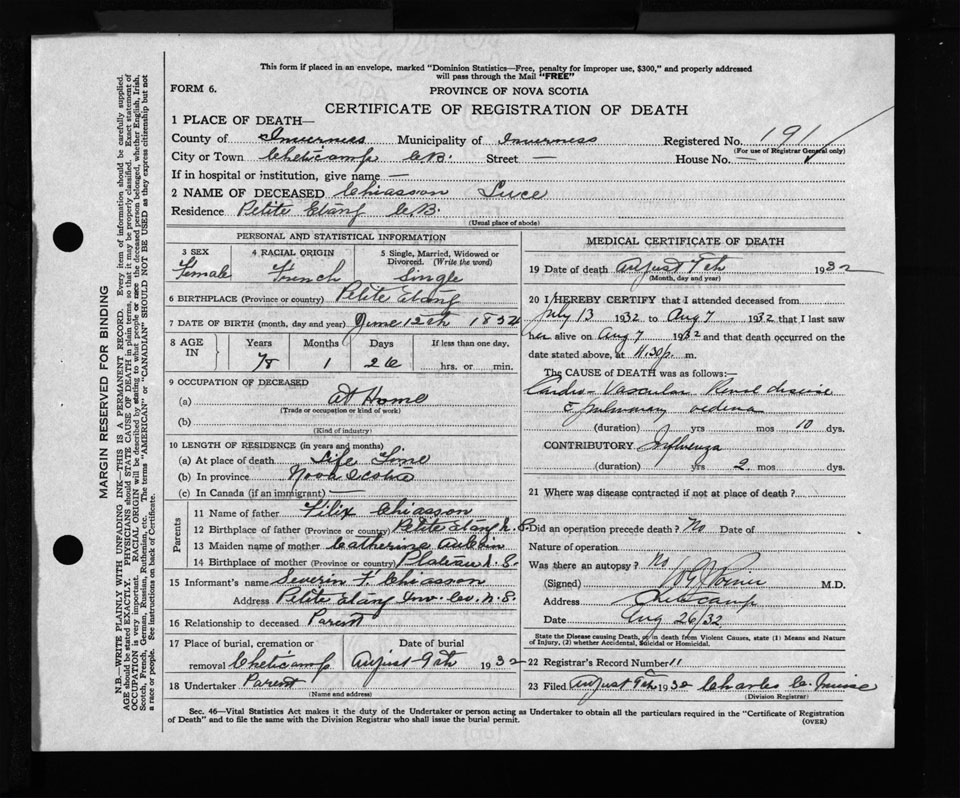 This form if placed in an envelope, marked "Dominion Statistics—Free, penalty for improper use, $300," and properly addressed
will pass through the Mail "FREE"
FORM 6.
PROVINCE OF NOVA SCOTIA
CERTIFICATE OF REGISTRATION OF DEATH
1 PLACE OF DEATH—
County of Inverness Municipality of Inverness Registered No. 191
(For use of Registrar General only)
City or Town Cheticamp C.B. Street — House No. —
If in hospital or institution, give name —
2 NAME OF DECEASED Chiasson Luce
Residence Petite Etang C.B.
(Usual place of abode)
PERSONAL AND STATISTICAL INFORMATION
3 SEX
Female
4 RACIAL ORIGIN
French
5 Single, Married, Widowed or
Divorced. (Write the word)
Single
6 BIRTHPLACE (Province or country) Petite Etang
7 DATE OF BIRTH (month, day and year) June 12th 1854
8 AGE IN
Years Months Days If less than one day.
78 1 26 hrs. or min.
9 OCCUPATION OF DECEASED
(a) At Home
(Trade or occupation or kind of work)
(b)
(Kind of industry)
10 LENGTH OF RESIDENCE (in years and months)
(a) At place of death Life Time
(b) In province Nova Scotia
(c) In Canada (if an immigrant) —
Parents
11 Name of father Filix Chiasson
12 Birthplace of father (Province or country) Petite Etang N.S.
13 Maiden name of mother Catherine Aubin
14 Birthplace of mother (Province or country) Plateau N.S.
15 Informant's name Severin F. Chiasson
Address Petite Etang Inv. Co. N.S.
16 Relationship to deceased Parent
17 Place of burial, cremation or
removal Cheticamp
Date of burial
August 9th 1932
18 Undertaker Parent
(Name and address)
MEDICAL CERTIFICATE OF DEATH
19 Date of death August 7th 1932
(Month, day and year)
20 I HEREBY CERTIFY that I attended deceased from
July 13 1932 to Aug 7 1932 that I last saw
her alive on Aug 7 1932 and that death occurred on the
date stated above, at 11.30 p. m.
The CAUSE of DEATH was as follows:—
Cardio-Vascular Renal disease
c pulmonary oedema
(duration) yrs mos 10 dys.
CONTRIBUTORY Influenza
(duration) yrs 2 mos. dys.
21 Where was disease contracted if not at place of death?
Did an operation precede death? No Date of
Nature of operation
Was there an autopsy? No
(Signed) M.D.
Address Cheticamp
Date Aug 26/32
State the Disease causing Death, or in death from Violent Causes, state (1) Means and Nature
of Injury, (2) whether Accidental, Suicidal or Homicidal.
22 Registrar's Record Number 11
23 Filed August 9th 1932 Charles C.
(Division Registrar)
Sec. 46—Vital Statistics Act makes it the duty of the Undertaker or person acting as Undertaker to obtain all the particulars required in the "Certificate of Registration
of Death" and to file the same with the Division Registrar who shall issue the burial permit.
(OVER)
MARGIN RESERVED FOR BINDING
N.B.—WRITE PLAINLY WITH UNFADING INK—THIS IS A PERMANENT RECORD. Every item of information should be carefully supplied.
AGE should be stated EXACTLY. PHYSICIANS should STATE CAUSE OF DEATH in plain terms, so that it may be properly classified. Exact statement of
OCCUPATION is very important. RACIAL ORIGIN will be described by stating to what people or race the deceased person belonged, whether English, Irish,
Scotch, French, German, Russian, Ruthenian, etc. The terms "AMERICAN" or "CANADIAN" SHOULD NOT BE USED as they express citizenship but not
a race or people. See instructions on back of Certificate.